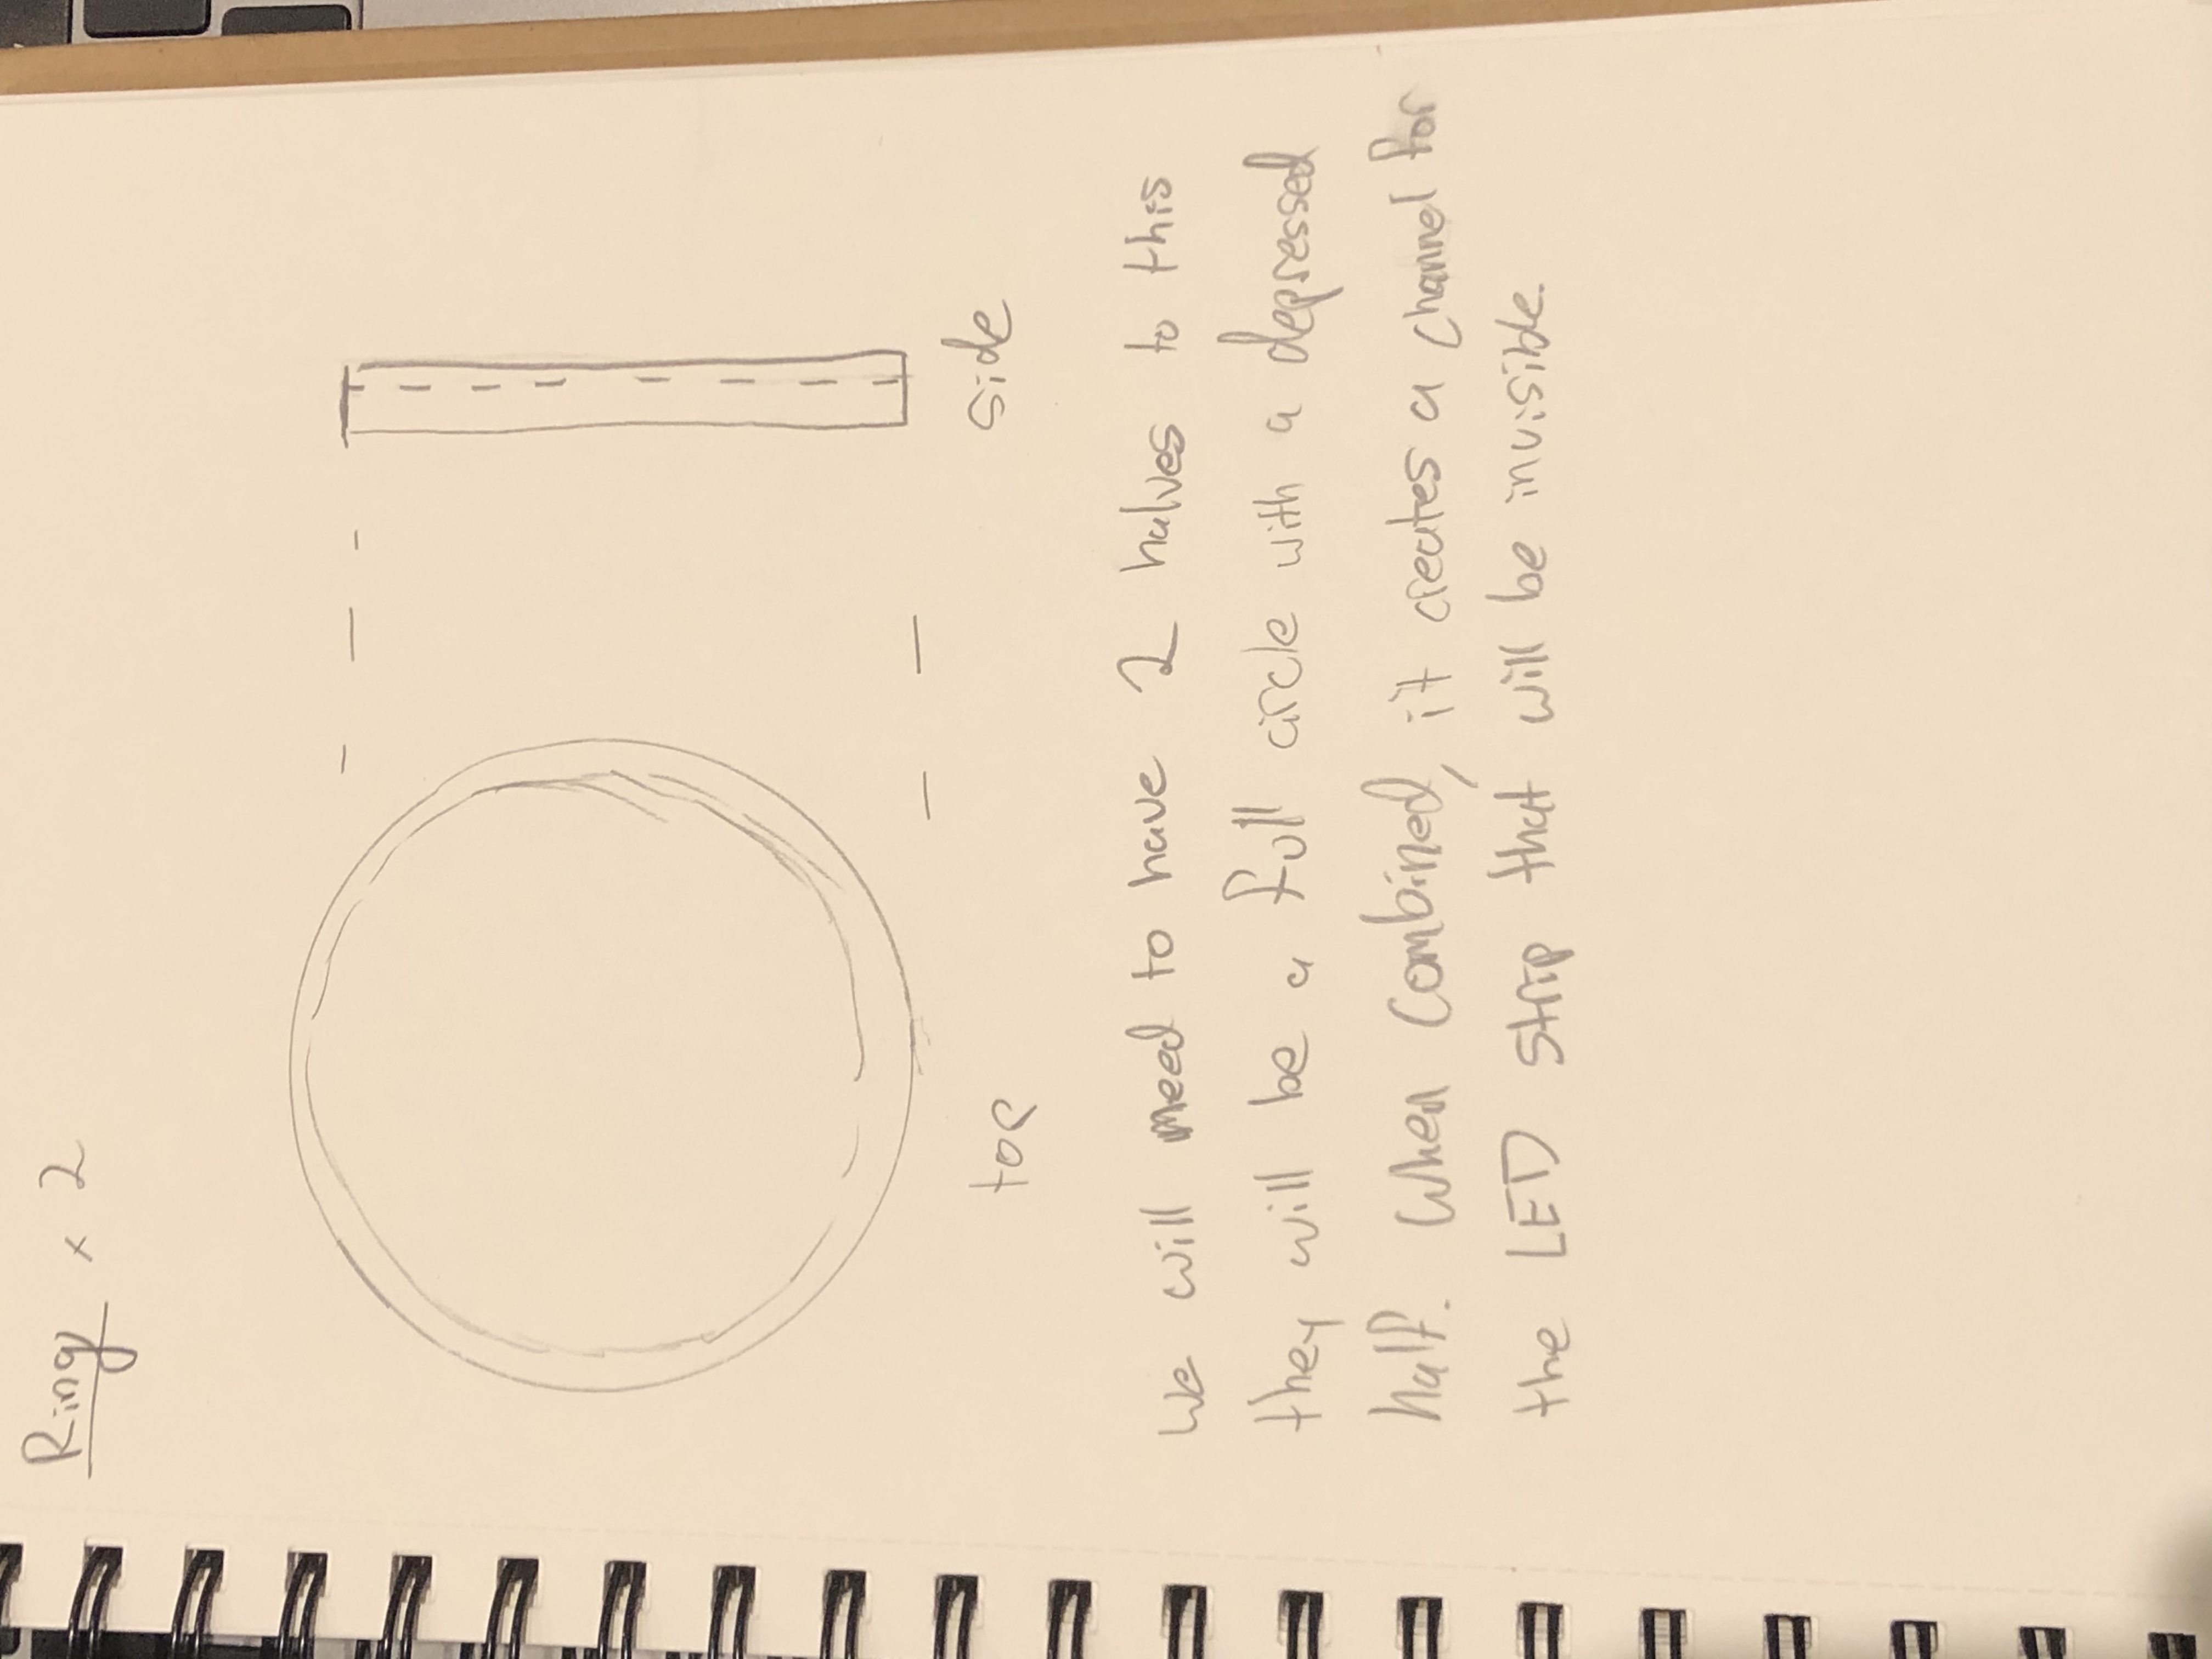 Ring x 2
top
side
We will need to have 2 halves to this
they will be a full circle with a depressed
half. When combined, it creates a channel for
the LED strip that will be invisible.